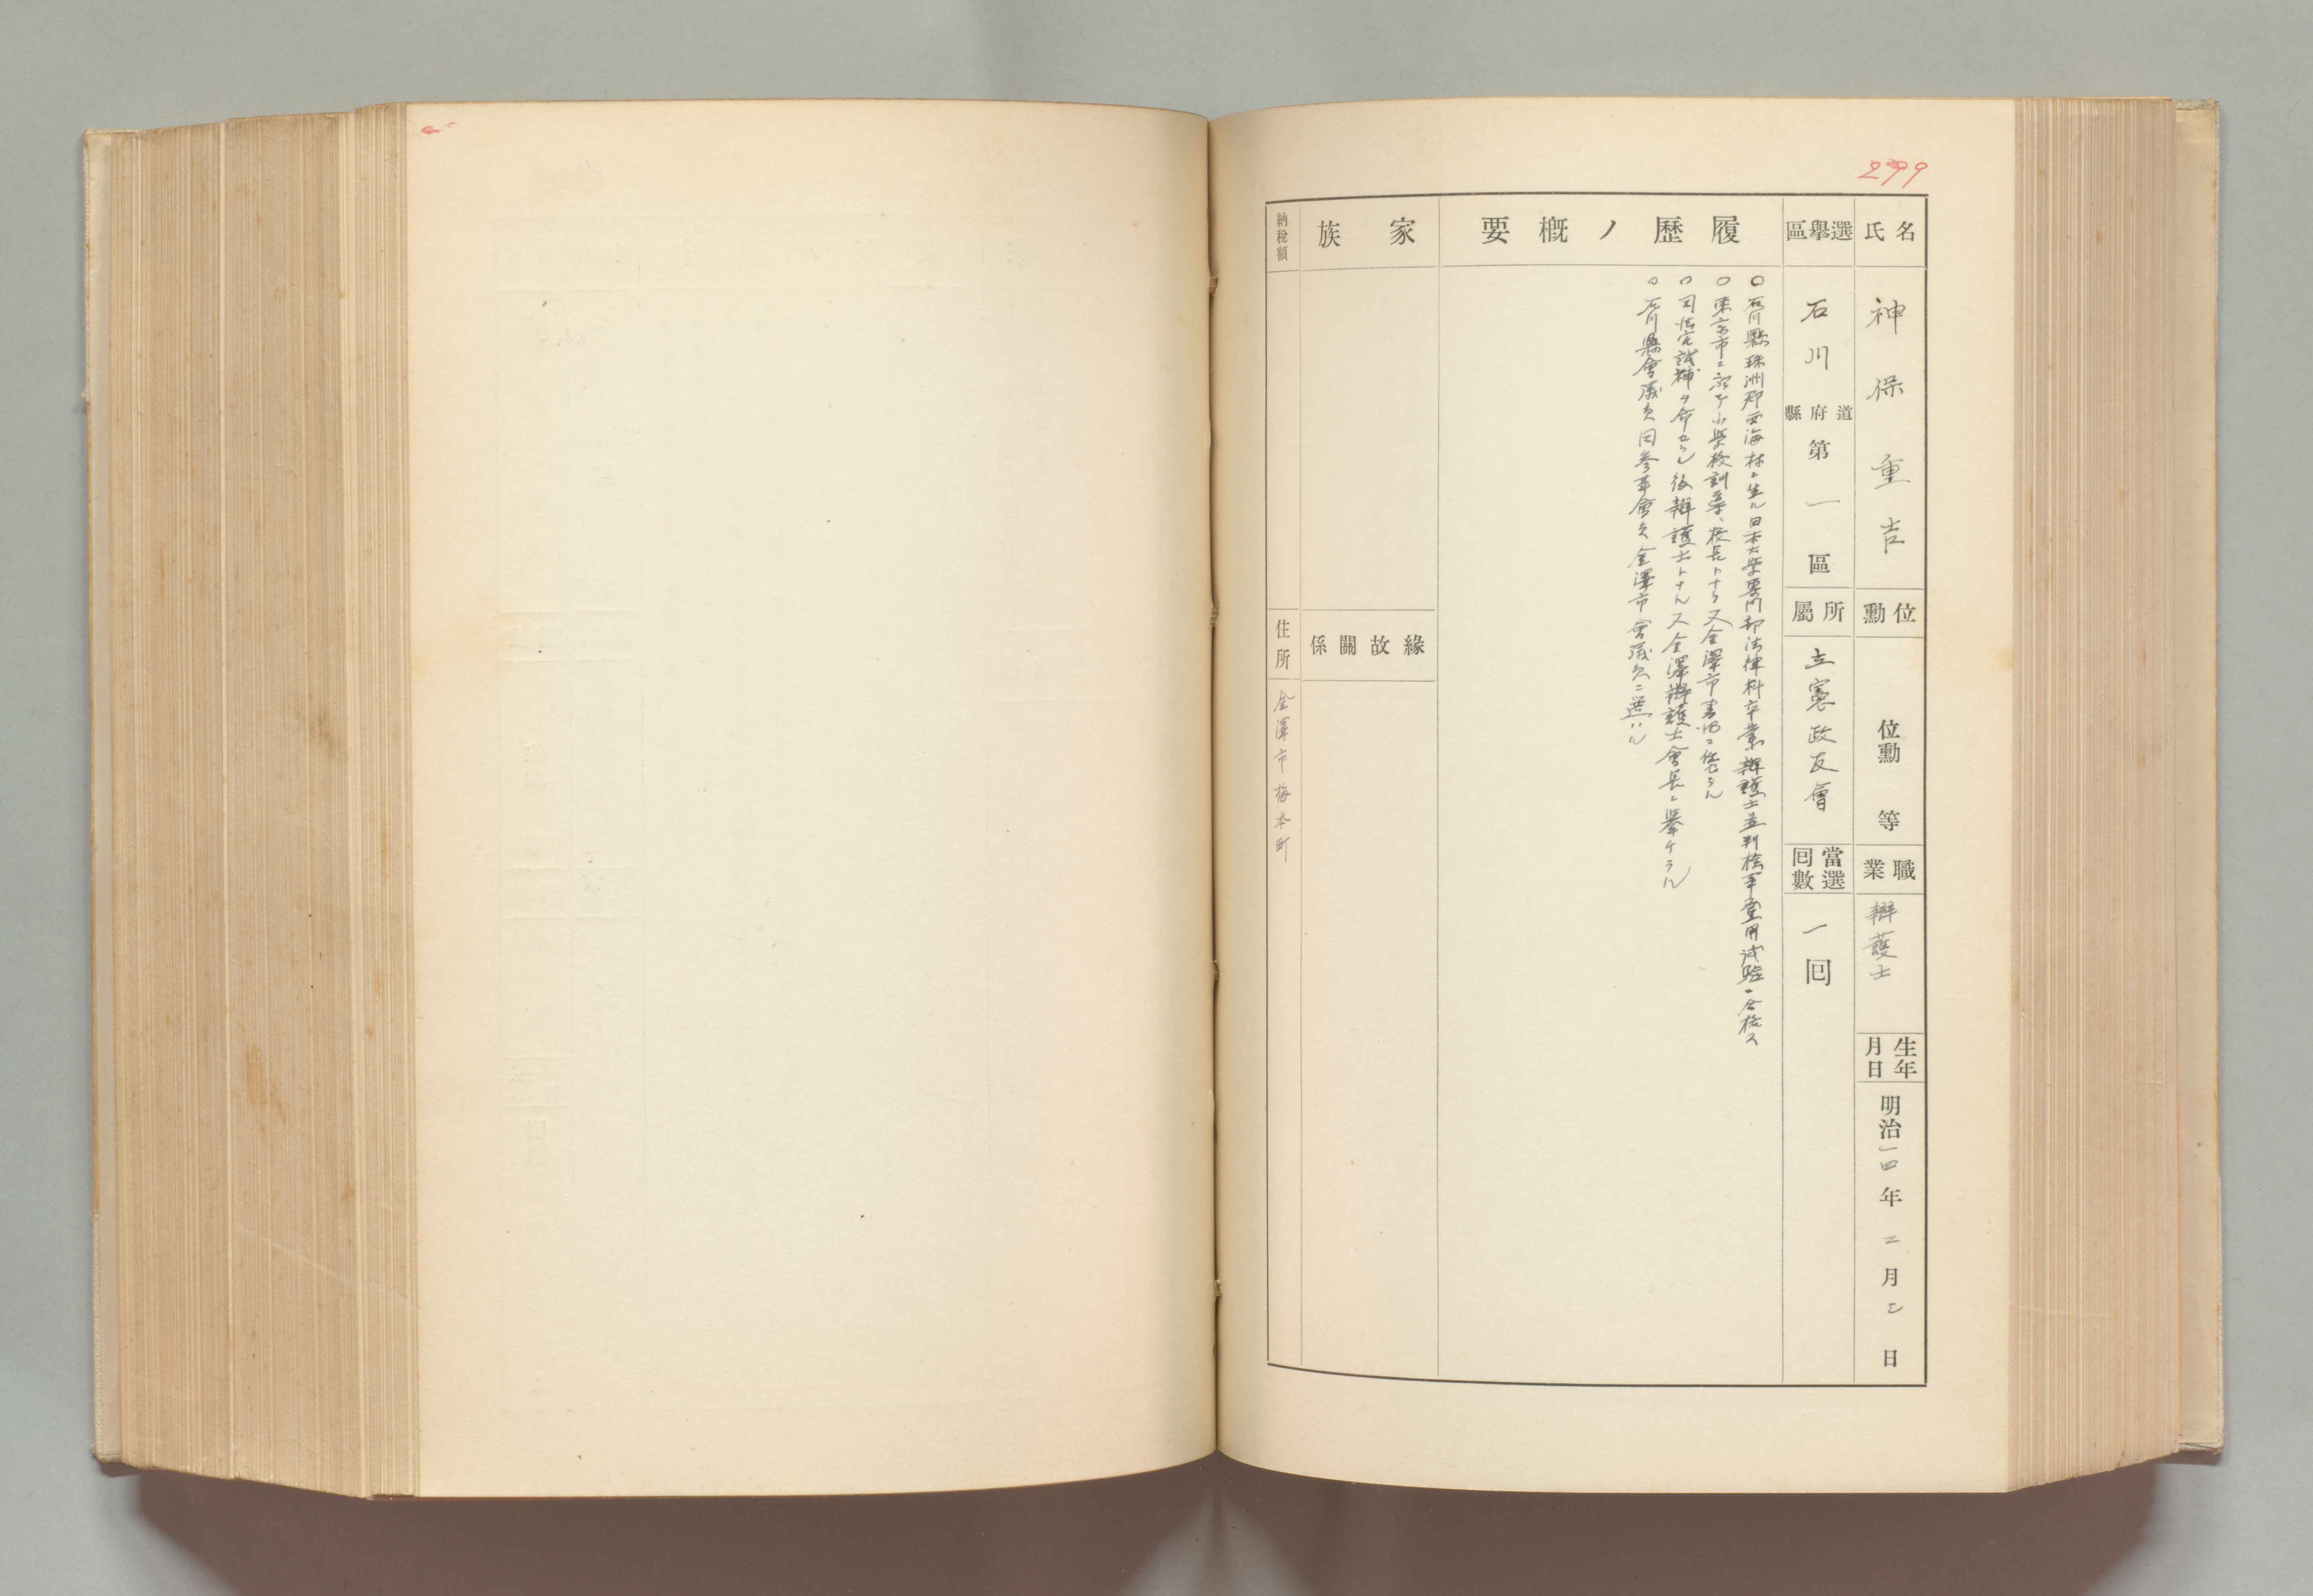 299
氏名
神保重吉
位勳
位勳 等
職業
辯護士
生年月日
明治一四年二月三日
選擧區
石川 道府縣 第一區
所屬
立憲政友會
當選回數
一回
履歷ノ概要
○石川縣珠洲郡西海村ニ生ル日本大學專門部法律科卒業辯護士並判檢事登用試驗ニ合格ス
○東京市ニ於テ小學校訓導、校長トナリ又金澤市書記ニ任セラル
○司法官試補ヲ命セラレ後辯護士トナル又金澤辯護士會長ニ擧ケラル
○石川縣會議員同參事會員金澤市會議員ニ選ハル
家族
緣故關係
納稅額
住所
金澤市梅本町